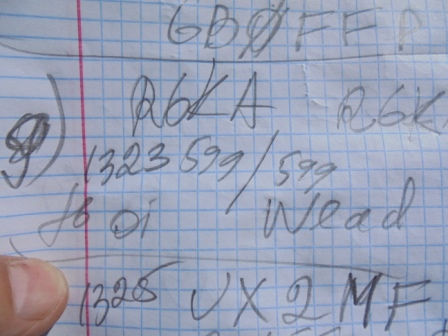 GBØFFP
9) R6KA R6K
1323 599/599
Oi Wlad
1325 UX2MF